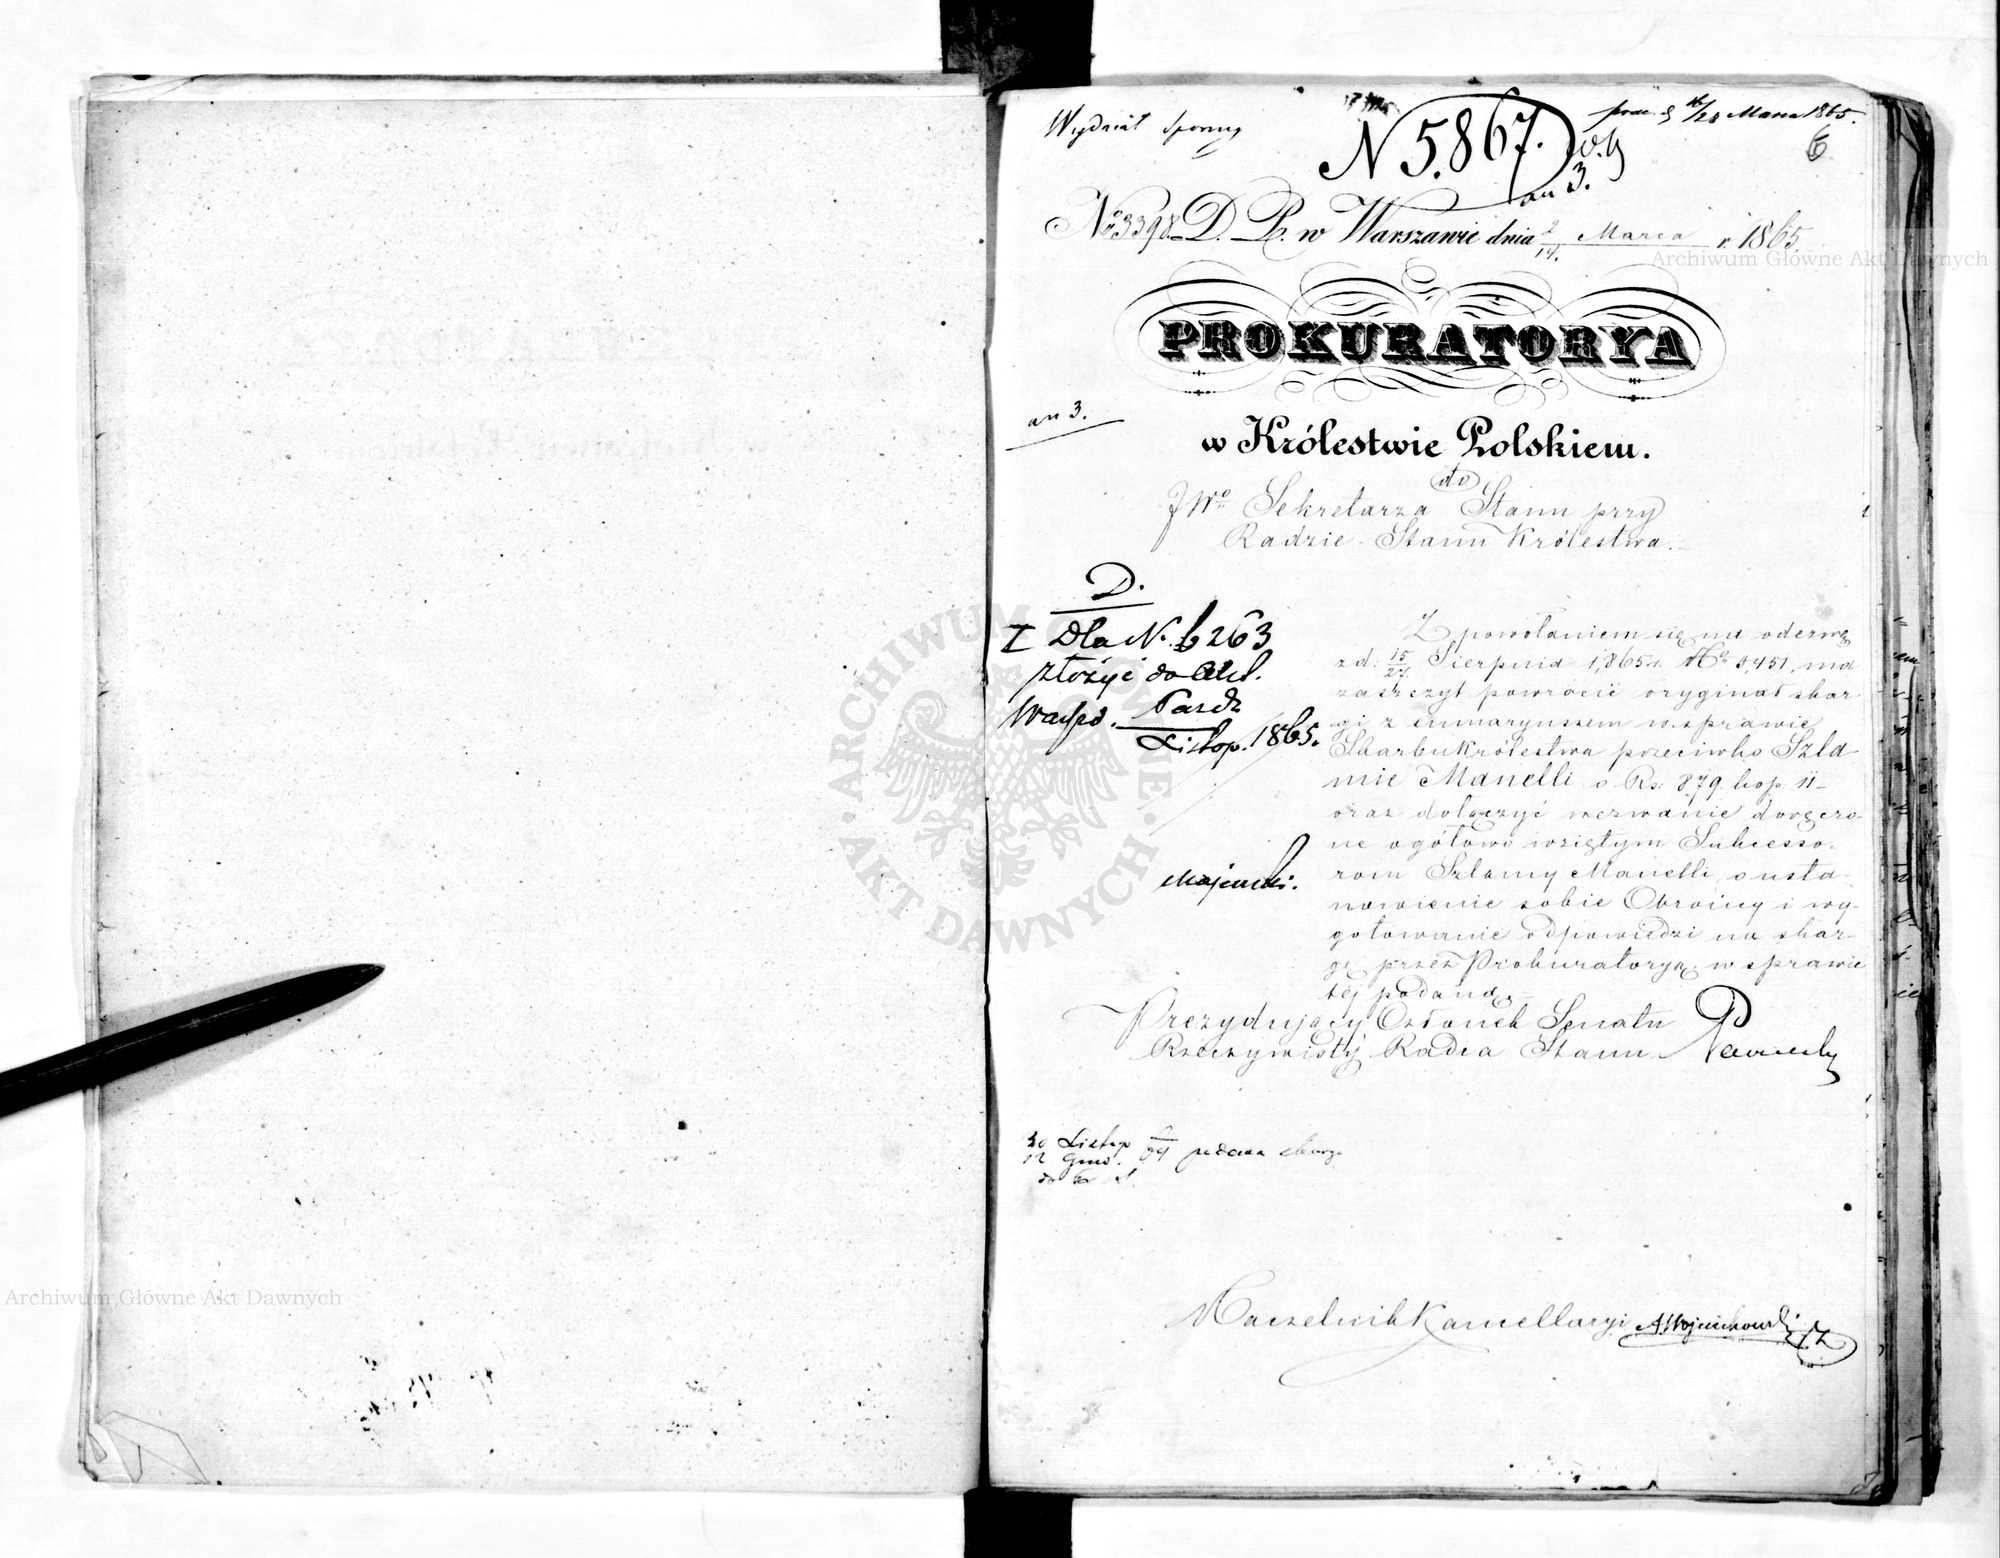 Wydział Sporny
N 5.867.
w. g
an 3.
prae. d 16/28 Marca 1865.
6
No 3398 D. P. w Warszawie dnia 2/14. Marca r. 1865.
PROKURATORYA
w Królestwie Polskiem.
an 3.
do
JWo Sekretarza Stanu przy
Radzie Stanu Królestwa.
D.
I Dla N. 6263
złożyć do Akt.
Warsz. Paźdz/Listop. 1865.
Majewski.
Z powołaniem się na odezwę
z d: 15/27 Sierpnia 1865 r. No 8451, ma
zaszczyt powrócić oryginał skar-
gi z emmarginesem w sprawie
Skarbu Królestwa przeciwko Szla-
mie Manelli o Rs: 879 kop. 11
oraz dołączyć wezwanie doręczo-
ne ogółowo wziętym Sukcesso-
rom Szlamy Manelli, o usta-
nowienie sobie Obrońcy i wy-
gotowanie odpowiedzi na skar-
gę przez Prokuratoryą w sprawie
téj podaną.
Prezydujący Członek Senatu
Rzeczywisty Radca Stanu
30 Listop
12 Grud. 64 podana skarga
do
Naczelnik Kancellaryi AWojciechowski
ARCHIWUM GŁÓWNE · AKT DAWNYCH ·
Archiwum Główne Akt Dawnych
Archiwum Główne Akt Dawnych